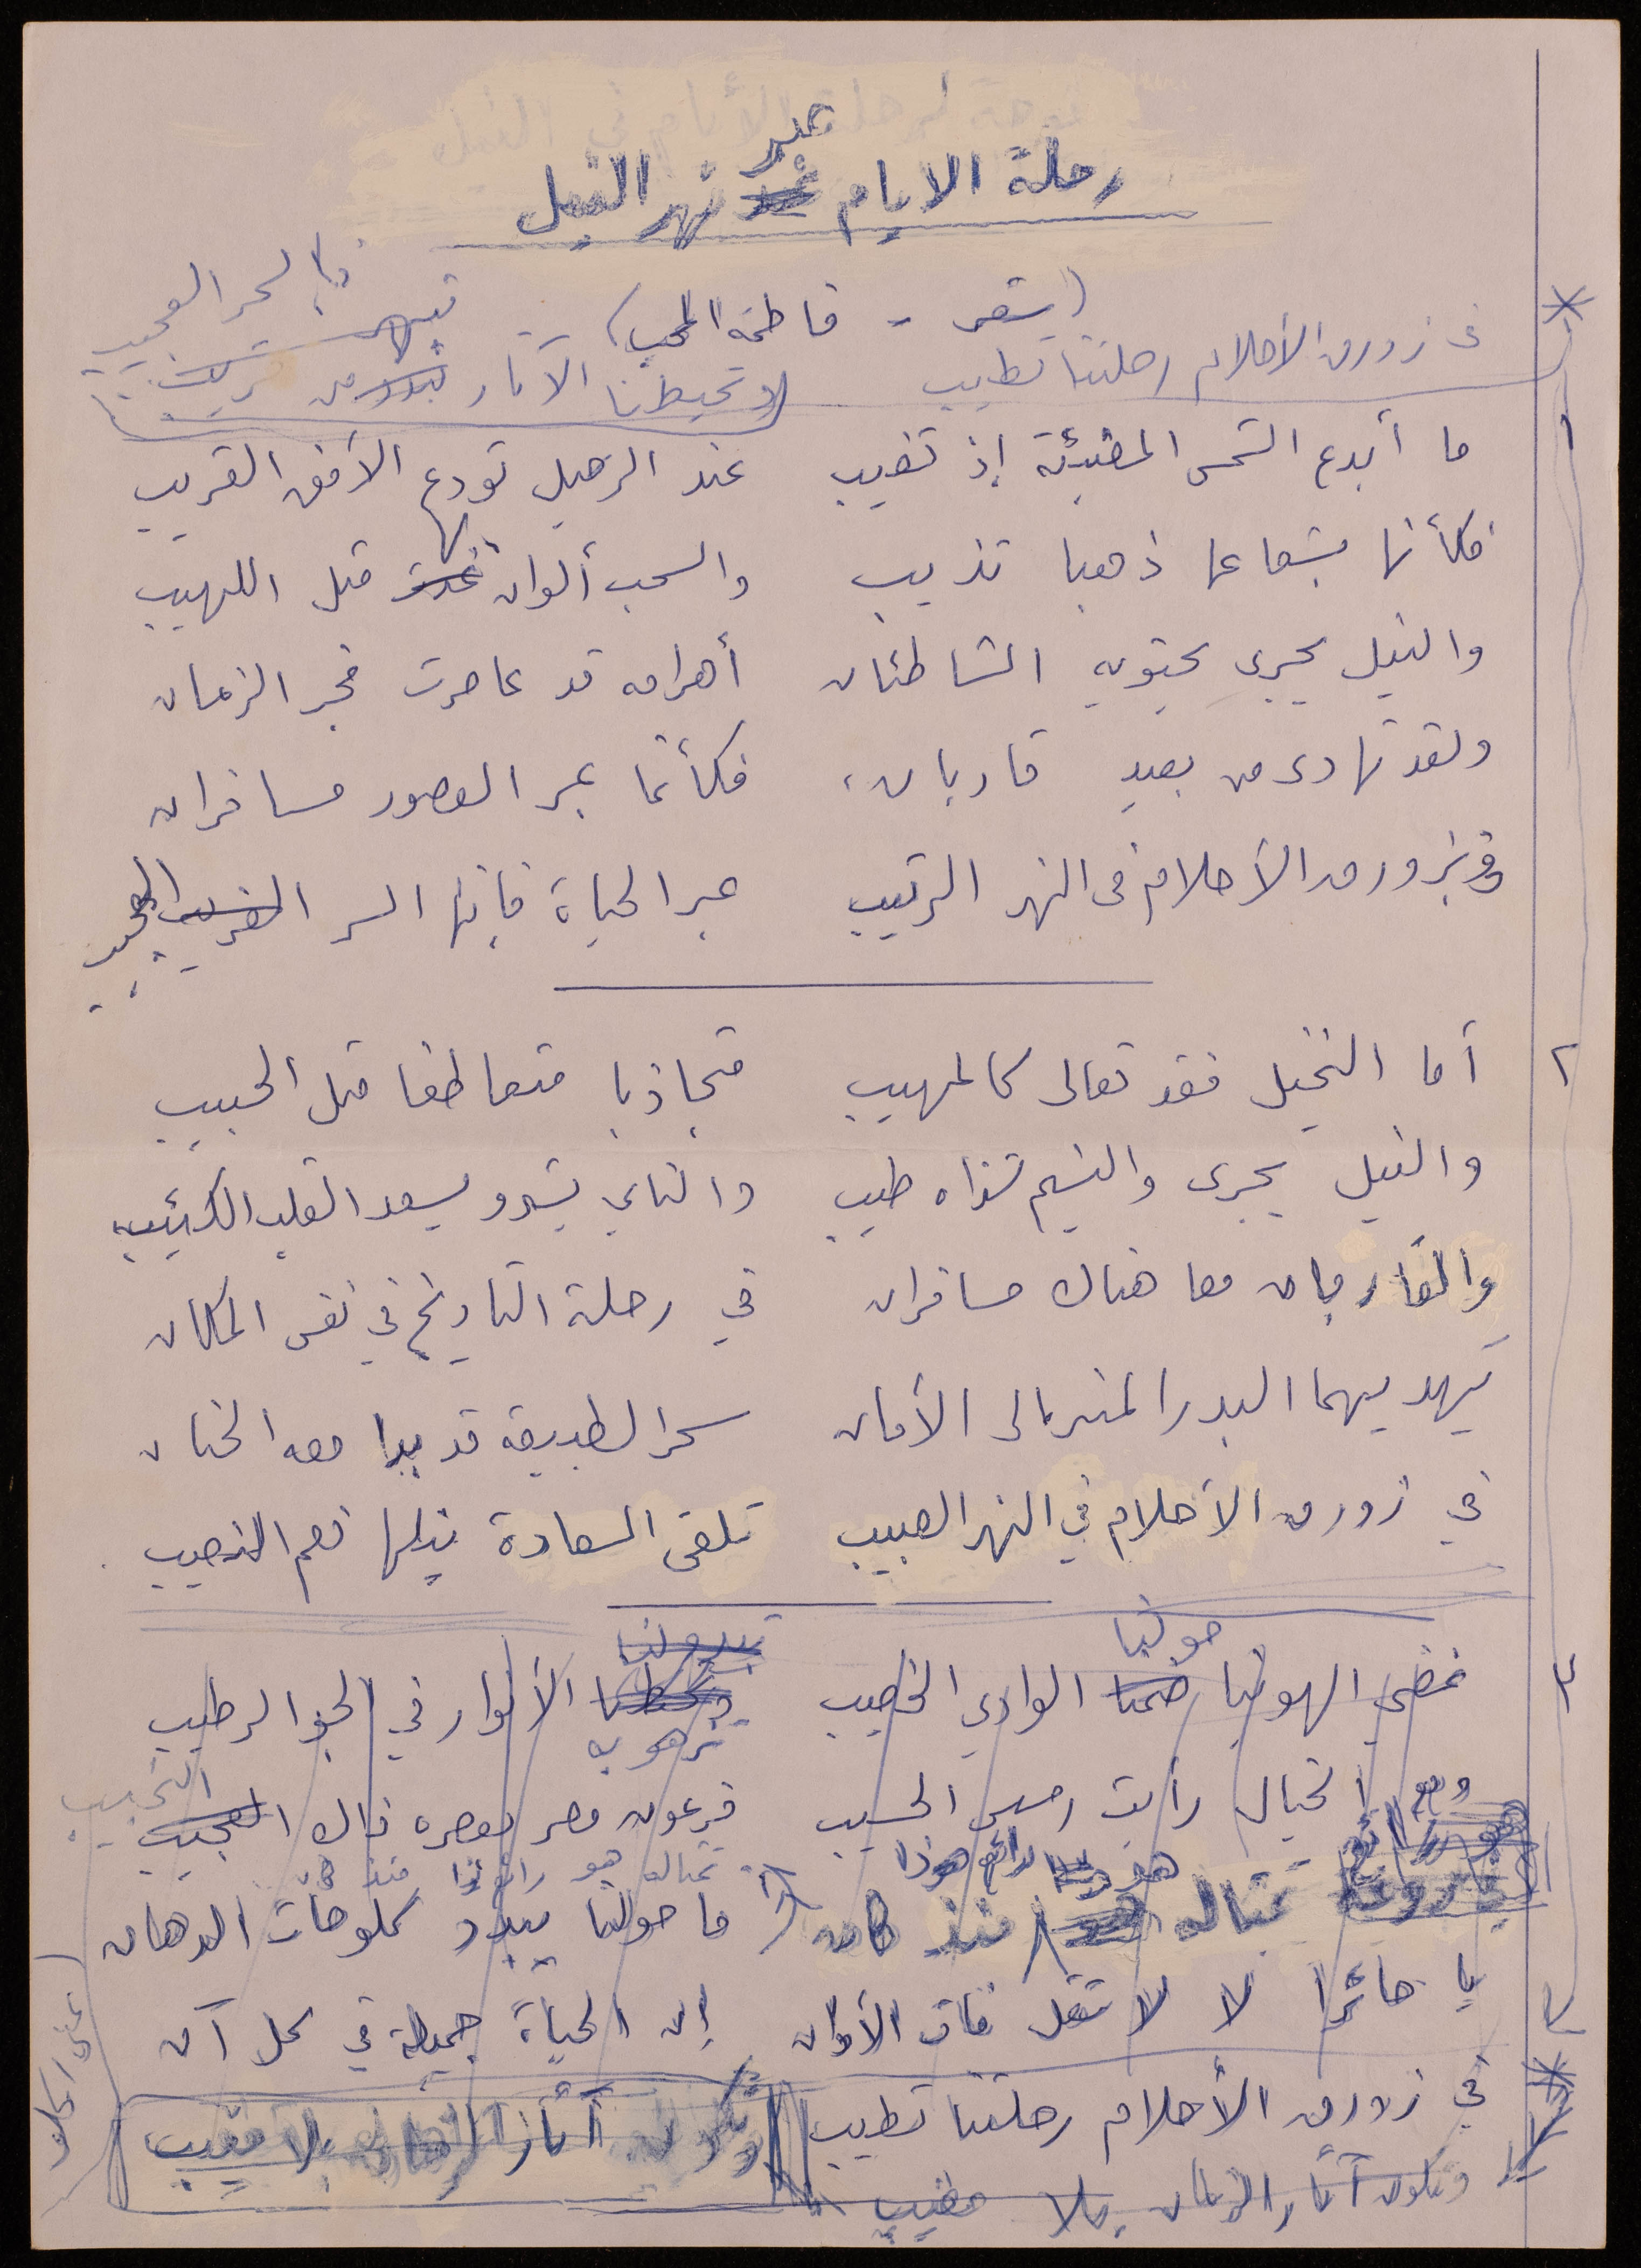 عبر
رحلة الايام نهر النيل
(شعر - فاطمة المحب)
في زورق الأحلام رحلتنا تطيب
وتحيطنا الآثار
بالسحر العجيب
١
ما أبدع الشمس المضيئة إذ تغيب عند الرحيل تودع الأفق القريب
فكأنها بشعاعها ذهبا تذيب والسحب ألوان لها مثل اللهيب
والنيل يجرى يحتويه الشاطئان أهرامه قد عاصرت فجر الزمان
ولقد تهادى من بعيد قاربان، فكأنما عبر العصور مسافران
في زورق الأحلام في النهر الرتيب عبر الحياة فإنها السر الغريب العجيب
٢
أما النخيل فقد تعالى كالمهيب متجاذبا متعاطفا مثل الحبيب
والنيل يجرى والنسيم شذاه طيب والناي يشدو يسعد القلب الكئيب
والقاربان معا هناك مسافران في رحلة التاريخ في نفس المكان
يهديهما البدر المنير إلى الأمان سحر الطبيعة قد بدا معه الحنان
في زورق الأحلام في النهر الحبيب تلقى السعادة نيلها نعم النصيب
حولنا تبدو لنا
نمضي الهوينا ضمنا الوادي الخصيب وتحيطنا الأنوار في الجو الرطيب
تزهو به
النجيب
ومع الخيال رأيت رمسيس الحسيب فرعون مصر بعصره ذاك العجيب
هو رائع
تمثاله هو رائع منذ
تمثاله منذ كان ما حولنا يبدو كلوحات الدهان
يا حائرا لا لا تقل فات الأوان إن الحياة جميلة في كل آن
في زورق الأحلام رحلتنا تطيب وتكون آثار الزمان بلا مغيب
وتكون آثار الزمان بلا مغيب